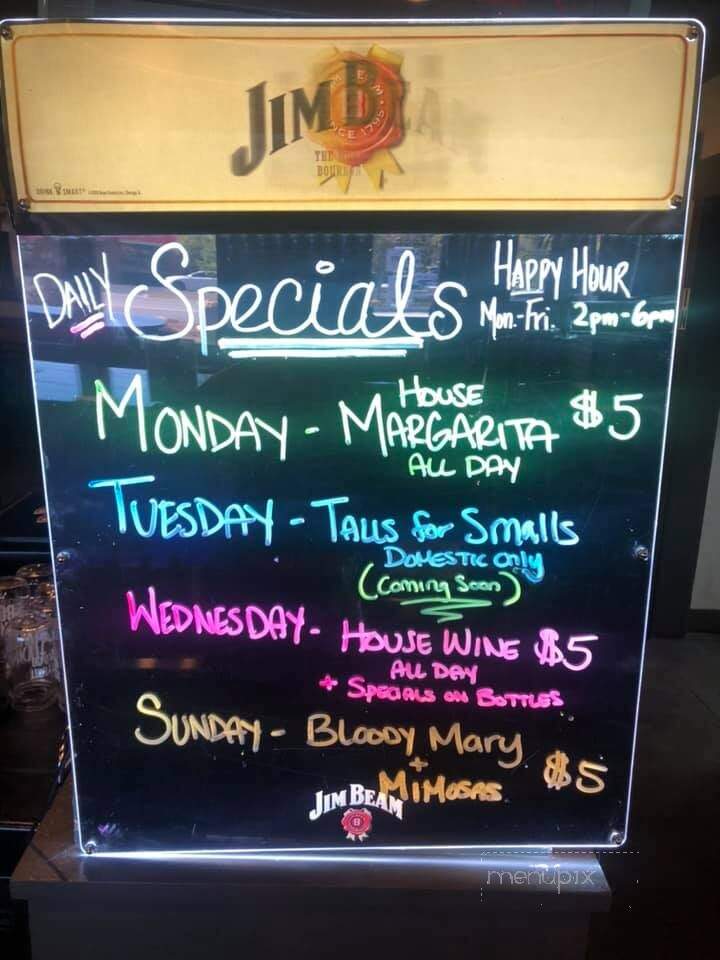 JIM BEAM
SINCE 1795
THE
BOURBON
DRINK SMART
DAILY Specials
HAPPY HOUR
Mon.-Fri. 2pm-6pm
MONDAY - HOUSE MARGARITA $5
ALL DAY
TUESDAY - TALLS for Smalls
DOMESTIC only
(Coming Soon)
WEDNESDAY - HOUSE WINE $5
ALL DAY
+ SPECIALS ON BOTTLES
SUNDAY - BLOODY Mary
+
MIMOSAS $5
JIM BEAM
menupix